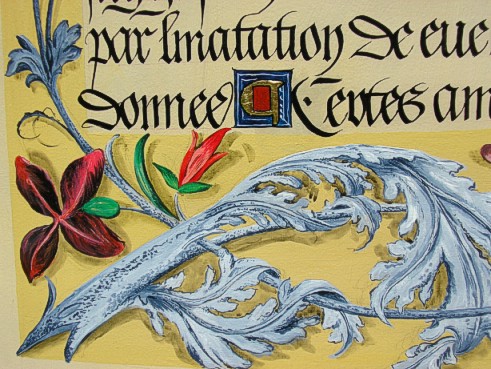 par lmatation de eue
donnee ¶ Certes am